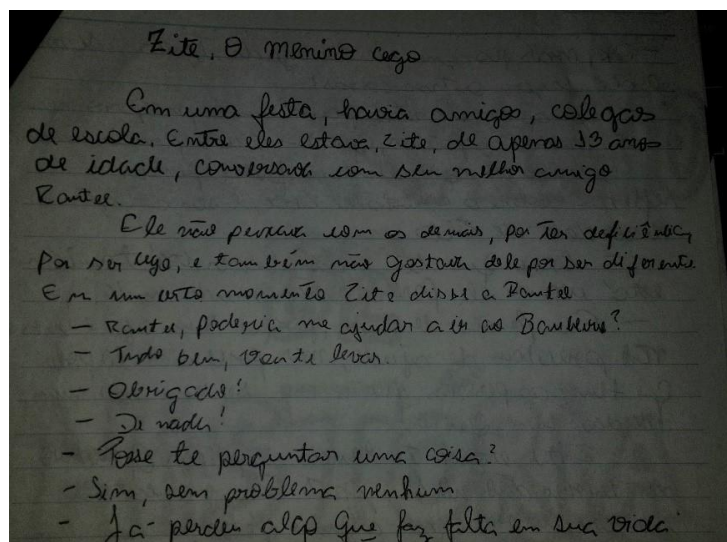 Zite, O menino cego
Em uma festa, havia amigos, colegas
de escola. Entre eles estava, Zite, de apenas 13 anos
de idade, conversava com seu melhor amigo
Rantee.
Ele não com os demais, por ter deficiência,
Por ser cego, e também não gostava dele por ser diferente.
Em um certo momento Zite disse a Rantee
- Rantee, poderia me ajudar a ir ao Banheiro?
- Tudo bem, vou te levar
- Obrigado!
- De nada!
- Posso te perguntar uma coisa?
- Sim, sem problema nenhum
- Já perdeu algo que faz falta em sua vida